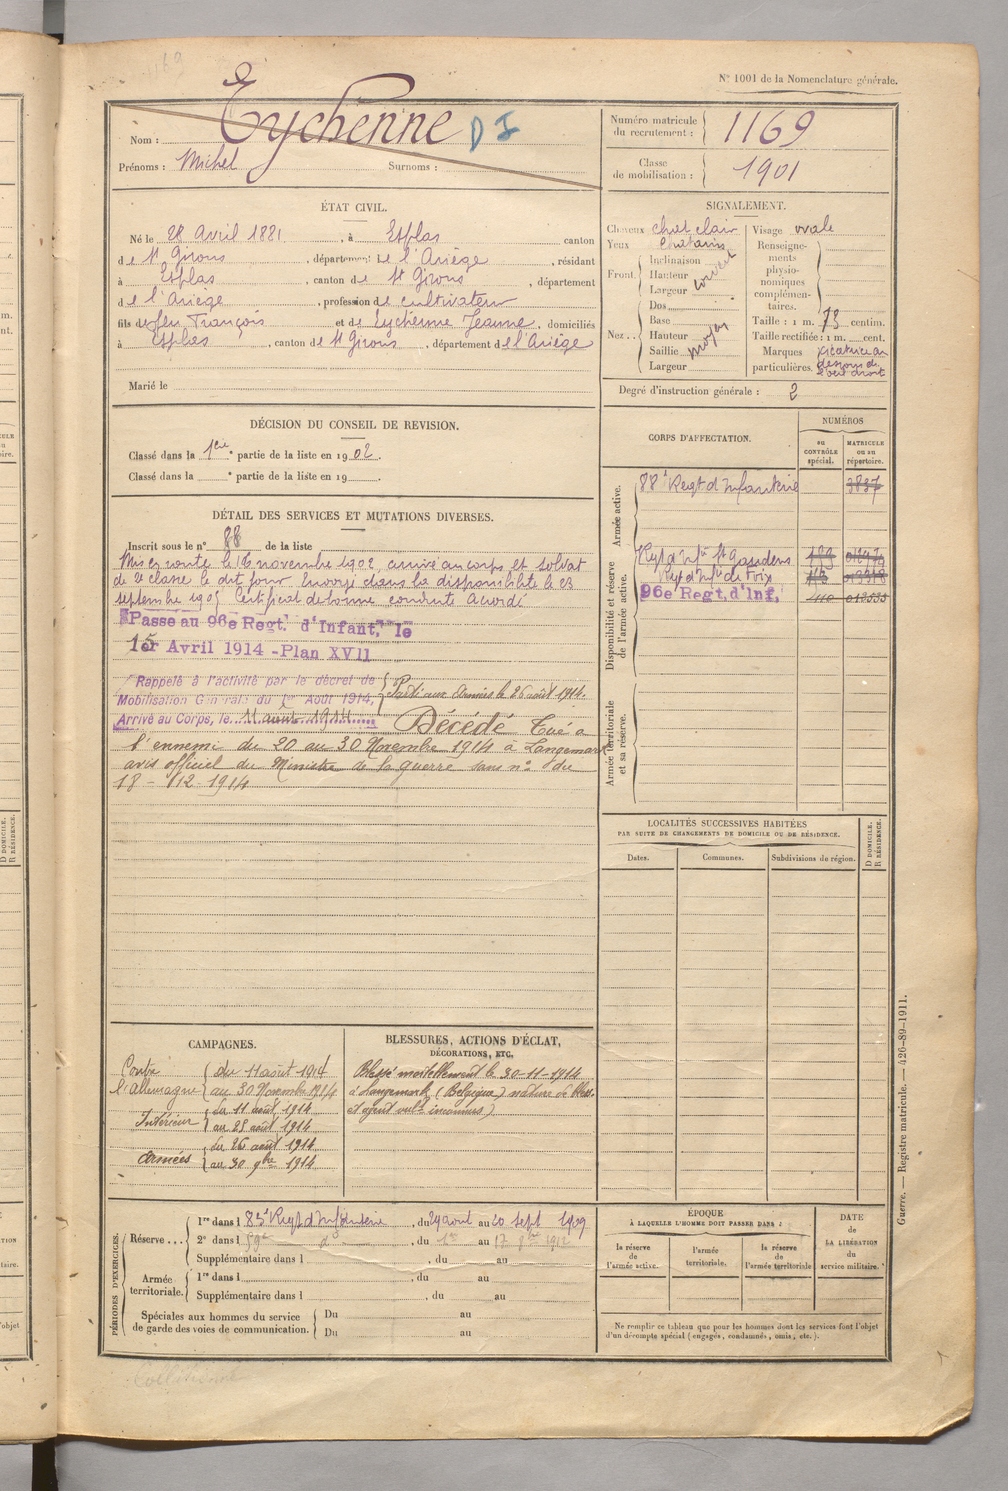 N° 1001 de la Nomenclature générale.
Nom : Eychenne D I
Prénoms : Michel Surnoms :
Numéro matricule du recrutement : 1169
Classe de mobilisation : 1901
ÉTAT CIVIL.
Né le 28 Avril 1881, à Esplas canton
de St Girons, département de l'Ariège, résidant
à Esplas, canton de St Girons département
de l'Ariège, profession de cultivateur
fils de feu François et de Eychenne Jeanne, domiciliés
à Esplas, canton de St Girons, département de l'Ariège
Marié le
SIGNALEMENT.
Cheveux chat clair Visage ovale
Yeux Chatains
Front Inclinaison Hauteur Largeur couvert
Nez Dos Base Hauteur Saillie Largeur moyen
Renseignements physionomiques complémentaires.
Taille : 1 m. 73 centim.
Taille rectifiée : 1 m. cent.
Marques particulières. cicatrice au dessous de l'œil droit
Degré d'instruction générale : 2
DÉCISION DU CONSEIL DE REVISION.
Classé dans la 1ère partie de la liste en 1902.
Classé dans la e partie de la liste en 19 .
CORPS D'AFFECTATION.
NUMÉROS
au CONTRÔLE spécial.
MATRICULE ou au répertoire.
Armée active.
88e Regt d'Infanterie 3837
Disponibilité et réserve de l'armée active.
Regt d'Inf ie St Gaudens
Regt d'Inf ie de Foix
96e Regt. d'Inf.
Armée territoriale et sa réserve.
DÉTAIL DES SERVICES ET MUTATIONS DIVERSES.
Inscrit sous le n° 88 de la liste
Mis en route le 16 novembre 1902, arrivé au corps et soldat
de 2e classe le dit jour. Envoyé dans la disponibilité le 23
septembre 1905 Certificat de bonne conduite accordé
Passe au 96e Regt. d'Infant. le
1er Avril 1914 - Plan XVII
Rappelé à l'activité par le décret de
Mobilisation Générale du 1er Août 1914,
Arrivé au Corps, le 11 août 1914
Parti aux armées le 26 août 1914.
Décédé Tué à
l'ennemi du 20 au 30 Novembre 1914 à Langemark
avis officiel du Ministre de la guerre sans n° du
18 - 12 - 1914
LOCALITÉS SUCCESSIVES HABITÉES
PAR SUITE DE CHANGEMENTS DE DOMICILE OU DE RÉSIDENCE.
Dates. Communes. Subdivisions de région. D DOMICILE. R RÉSIDENCE.
CAMPAGNES.
Contre l'Allemagne du 11 août 1914
au 30 Novembre 1914
Intérieur du 11 août 1914
au 25 août 1914
Armées du 26 août 1914
au 30 9bre 1914
BLESSURES, ACTIONS D'ÉCLAT,
DÉCORATIONS, ETC.
Blessé mortellement le 30-11-1914
à Langemark (Belgique) nature de bless.
et agent vuln. inconnus)
PÉRIODES D'EXERCICES.
Réserve ... 1re dans l 83e Regt d'Infanterie, du 24 aout au 20 sept 1909
2e dans l 59e do, du 1er au 17 8bre 1912
Supplémentaire dans l , du au
Armée territoriale. 1re dans l , du au
Supplémentaire dans l , du au
Spéciales aux hommes du service de garde des voies de communication. Du au
Du au
ÉPOQUE
À LAQUELLE L'HOMME DOIT PASSER DANS :
la réserve de l'armée active.
l'armée territoriale.
la réserve de l'armée territoriale
DATE de LA LIBÉRATION du service militaire.
Ne remplir ce tableau que pour les hommes dont les services font l'objet
d'un décompte spécial (engagés, condamnés, omis, etc.).
Guerre. — Registre matricule. — 426-89-1911.